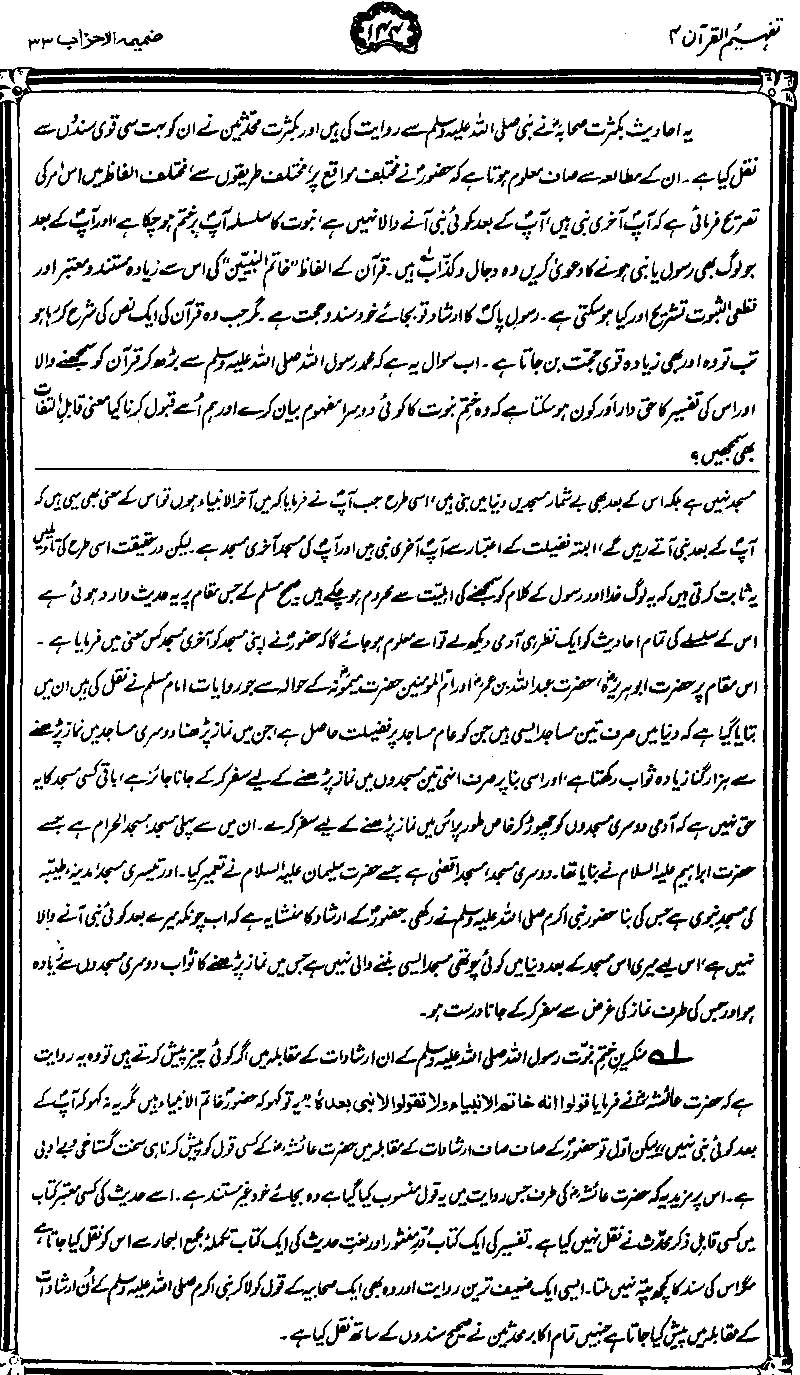 تفہیم القرآن ۴
۱۴۴
ضمیمہ الاحزاب ۳۳
یہ احادیث بکثرت صحابہؓ نے نبی صلی اللہ علیہ وسلم سے روایت کی ہیں اور بکثرت محدثین نے ان کو بہت سی قوی سندوں سے
نقل کیا ہے۔ ان کے مطالعہ سے صاف معلوم ہوتا ہے کہ حضورؐ نے مختلف مواقع پر، مختلف طریقوں سے، مختلف الفاظ میں اس امر کی
تصریح فرمائی ہے کہ آپؐ آخری نبی ہیں، آپؐ کے بعد کوئی نبی آنے والا نہیں ہے، نبوت کا سلسلہ آپؐ پر ختم ہو چکا ہے، اور آپؐ کے بعد
جو لوگ بھی رسول یا نبی ہونے کا دعویٰ کریں وہ دجال و کذّاب ہیں۔ قرآن کے الفاظ ”خاتم النبیّین“ کی اس سے زیادہ مستند و معتبر اور
قطعی الثبوت تشریح اور کیا ہو سکتی ہے۔ رسول پاکؐ کا ارشاد تو بجائے خود سند و حجت ہے۔ مگر جب وہ قرآن کی ایک نص کی شرح کر رہا ہو
تب تو وہ اور بھی زیادہ قوی حجت بن جاتا ہے۔ اب سوال یہ ہے کہ محمد رسول اللہ صلی اللہ علیہ وسلم سے بڑھ کر قرآن کو سمجھنے والا
اور اس کی تفسیر کا حق دار اور کون ہو سکتا ہے کہ وہ ختم نبوت کا کوئی دوسرا مفہوم بیان کرے اور ہم اُسے قبول کرنا کیا معنی قابلِ التفات
بھی سمجھیں؟
مسجد نہیں ہے بلکہ اس کے بعد بھی بے شمار مسجدیں دنیا میں بنی ہیں، اسی طرح جب آپؐ نے فرمایا کہ میں آخر الانبیاء ہوں تو اس کے معنی بھی یہی ہیں کہ
آپؐ کے بعد نبی آتے رہیں گے، البتہ فضیلت کے اعتبار سے آپؐ آخری نبی ہیں اور آپؐ کی مسجد آخری مسجد ہے۔ لیکن درحقیقت اسی طرح کی تاویلیں
یہ ثابت کرتی ہیں کہ یہ لوگ خدا اور رسول کے کلام کو سمجھنے کی اہلیت سے محروم ہو چکے ہیں۔ صحیح مسلم کے جس مقام پر یہ حدیث وارد ہوئی ہے
اس کے سلسلے کی تمام احادیث کو ایک نظر ہی آدمی دیکھ لے تو اسے معلوم ہو جائے گا کہ حضورؐ نے اپنی مسجد کو آخری مسجد کس معنی میں فرمایا ہے۔
اس مقام پر حضرت ابو ہریرہؓ، حضرت عبداللہ بن عمرؓ اور ام المومنین حضرت میمونہؓ کے حوالہ سے جو روایات امام مسلم نے نقل کی ہیں ان میں
بتایا گیا ہے کہ دنیا میں صرف تین مساجد ایسی ہیں جن کو عام مساجد پر فضیلت حاصل ہے، جن میں نماز پڑھنا دوسری مساجد میں نماز پڑھنے
سے ہزار گنا زیادہ ثواب رکھتا ہے، اور اسی بنا پر صرف انہی تین مسجدوں میں نماز پڑھنے کے لیے سفر کر کے جانا جائز ہے، باقی کسی مسجد کا یہ
حق نہیں ہے کہ آدمی دوسری مسجدوں کو چھوڑ کر خاص طور پر اس میں نماز پڑھنے کے لیے سفر کرے۔ ان میں سے پہلی مسجد مسجد الحرام ہے جسے
حضرت ابراہیم علیہ السلام نے بنایا تھا۔ دوسری مسجد، مسجد اقصیٰ ہے جسے حضرت سلیمان علیہ السلام نے تعمیر کیا۔ اور تیسری مسجد، مدینۂ طیبّہ
کی مسجد نبوی ہے جس کی بنا حضور نبی اکرم صلی اللہ علیہ وسلم نے رکھی۔ حضورؐ کے ارشاد کا منشا یہ ہے کہ اب چونکہ میرے بعد کوئی نبی آنے والا
نہیں ہے، اس لیے میری اس مسجد کے بعد دنیا میں کوئی چوتھی مسجد ایسی بننے والی نہیں ہے جس میں نماز پڑھنے کا ثواب دوسری مسجدوں سے زیادہ
ہو اور جس کی طرف نماز کی غرض سے سفر کر کے جانا درست ہو۔
لہ منکرین ختم نبوت رسول اللہ صلی اللہ علیہ وسلم کے ان ارشادات کے مقابلہ میں اگر کوئی چیز پیش کرتے ہیں تو وہ یہ روایت
ہے کہ حضرت عائشہؓ نے فرمایا قولوا انه خاتم الانبياء ولا تقولوا لا نبی بعدہ: ”یہ تو کہو کہ حضورؐ خاتم الانبیاء ہیں مگر یہ نہ کہو کہ آپؐ کے
بعد کوئی نبی نہیں“۔ لیکن اوّل تو حضورؐ کے صاف صاف ارشادات کے مقابلہ میں حضرت عائشہؓ کے کسی قول کو پیش کرنا ہی سخت گستاخی و بے ادبی
ہے۔ اس پر مزید یہ کہ حضرت عائشہؓ کی طرف جس روایت میں یہ قول منسوب کیا گیا ہے وہ بجائے خود غیر مستند ہے۔ اسے حدیث کی کسی معتبر کتاب
میں کسی قابل ذکر محدّث نے نقل نہیں کیا ہے۔ تفسیر کی ایک کتاب دُرِّ منثور اور لغتِ حدیث کی ایک کتاب تکملہ مجمع البحار سے اس کو نقل کیا جاتا ہے
مگر اس کی سند کا کچھ پتہ نہیں ملتا۔ ایسی ایک ضعیف ترین روایت اور وہ بھی ایک صحابیہ کے قول کو لا کر نبی اکرم صلی اللہ علیہ وسلم کے اُن ارشادات
کے مقابلہ میں پیش کیا جاتا ہے جنہیں تمام اکابر محدثین نے صحیح سندوں کے ساتھ نقل کیا ہے۔